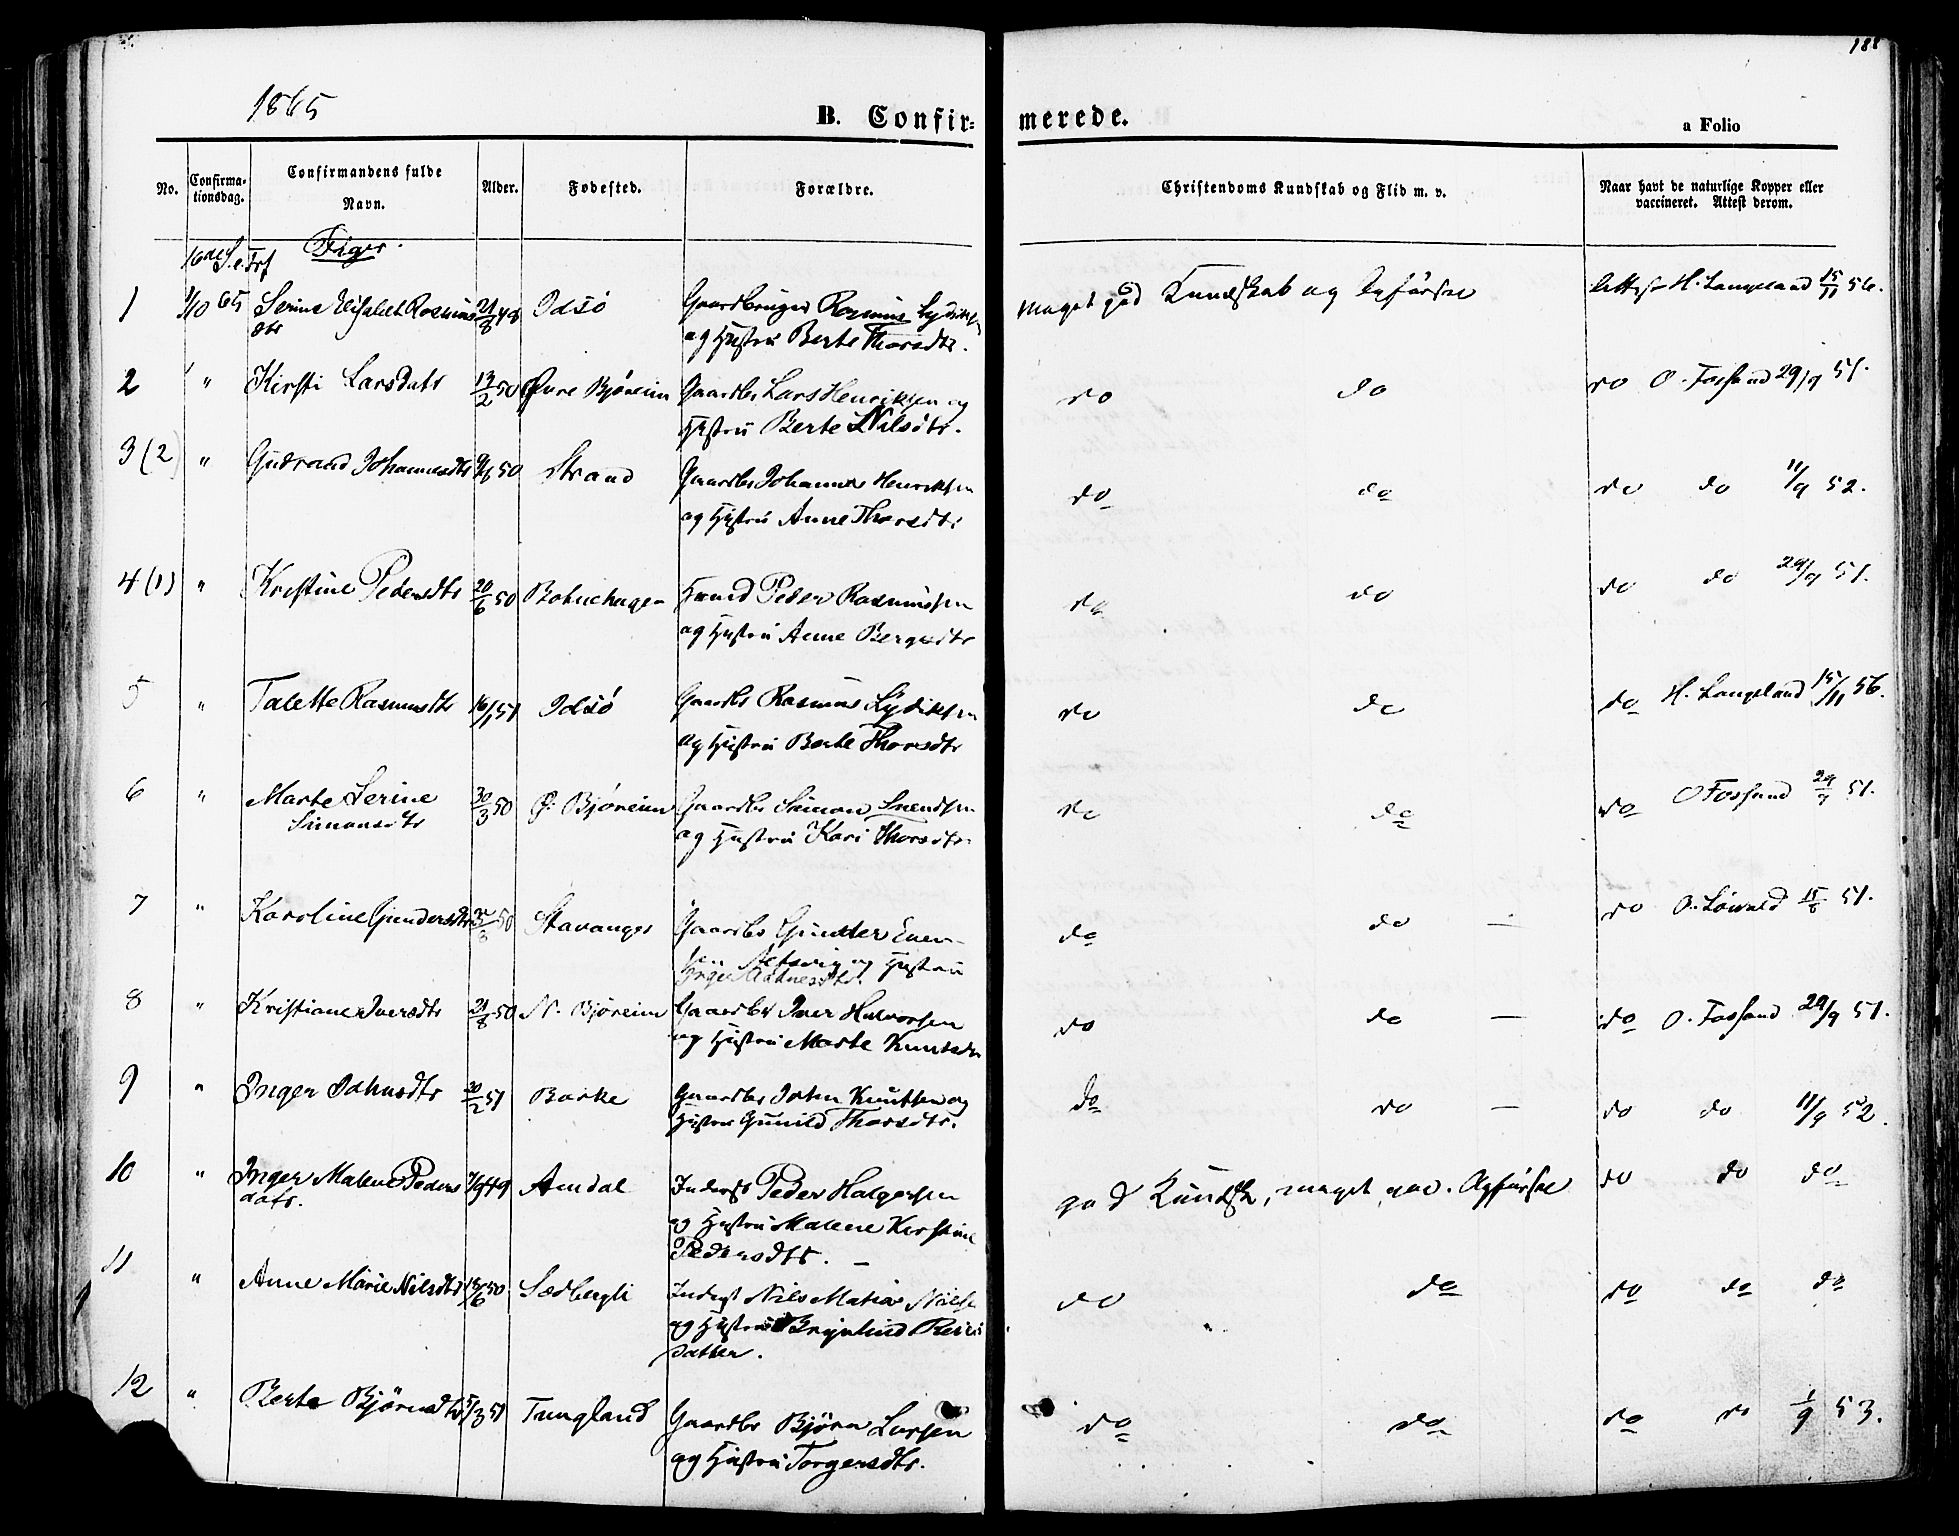 188
1865
B. Confir= merede.
a Folio
No. Confirma-tionsdag. Confirmandens fulde Navn. Alder. Fødested. Forældre. Christendoms Kundskab og Flid m. v. Naar havt de naturlige Kopper eller vaccineret. Attest derom.
16de S. e. Trf Piger.
1 1/10 65 Serine Elisabeth Rasmus 21/8 48 Idsø Gaardbruger Rasmus Lydiksen meget god Kundskab og Opførsel Attest H. Langeland 15/11 56.
dtr og Hustru Berte Thorsdtr.
2 " Kirsti Larsdatr 13/2 50 Øvre Bjøreim Gaardbr Lars Henriksen og do do do O. Fossand 29/9 51.
Hustru Berte Nilsdtr.
3 (2) " Gudrand Johannesdtr 50 Strand Gaardbr Johannes Henriksen do do do do 11/9 52.
og Hustru Anne Thorsdtr
4 (1) " Kristine Pedersdtr 20/6 50 Peder Rasmussen do do do do 29/9 51.
og Hustru Anne
5 " Talette Rasmusdtr 16/1 51 Idsø Gaardbr Rasmus Lydiksen do do do H. Langeland 15/11 56.
og Hustru Berte Thorsdtr
6 " Marte Serine 30/3 50 Ø. Bjøreim Gaardbr Simon Svendsen do do do O Fossand 29/9 51.
Simonsdtr og Hustru Kari Thorsdtr
7 " Karoline Gundersdtr 50 Stavanger Gaardbr Gunder Even- do do — do O. Løwald 15/8 51.
sen og Hustru
Inger
8 " Kristiane Iversdtr 21/8 50 N. Bjøreim Gaardbr Iver Halvorsen do do — do O. Fossand 29/9 51.
og Hustru Marte Knutsdtr
9 " Inger Johnsdtr 20/2 51 Barke Gaardbr John Knutsen og do do — do do 11/9 52.
Hustru Gunild Thorsdtr.
10 " Inger Malene Peders 7/9 49 Amdal Inderst Peder Holgersen god Kundsk, meget god. Opførsel do do do
datr. og Hustru Malene Kirstine
Pedersdtr. —
11 " Anne Marie Nilsdtr 18/6 50 Sædbergli Inderst Nils Matias Nilsen do do do do do
og Hustru
datter.
12 " Berte Bjørnsdtr 5/3 51 Tungland Gaardbr Bjørn Larsen do do do do 1/9 53.
og Hustru Torgersdtr.